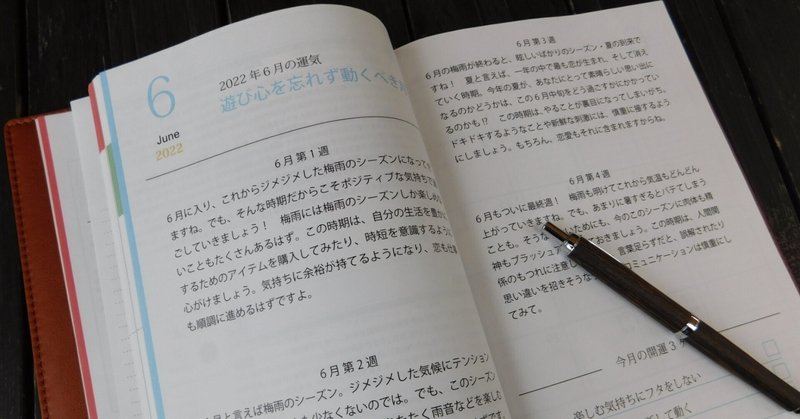 6
June
2022
2022年6月の運気
遊び心を忘れず動くべき
6月第1週
6月に入り、これからジメジメした梅雨のシーズンになって
ますね。でも、そんな時期だからこそポジティブな気持ちで
ごしていきましょう! 梅雨には梅雨のシーズンしか楽しめ
いこともたくさんあるはず。この時期は、自分の生活を豊か
するためのアイテムを購入してみたり、時短を意識するように
心がけましょう。気持ちに余裕が持てるようになり、恋も仕
も順調に進めるはずですよ。
6月第2週
6月と言えば梅雨のシーズン。ジメジメした気候にテンション
も少なくないのでは。でも、このシーズン
たく雨音などを楽しむ
6月第3週
6月の梅雨が終わると、眩しいばかりのシーズン・夏の到来で
すね! 夏と言えば、一年の中で最も恋が生まれ、そして消え
ていく時期。今年の夏が、あなたにとって素晴らしい思い出に
なるのかどうかは、この6月中旬をどう過ごすかにかかってい
るのかも!? この時期は、やることが裏目になってしまいがち。
ドキドキするようなことや新鮮な刺激には、慎重に接するよう
にしましょう。もちろん、恋愛もそれに含まれますからね。
6月第4週
6月もついに最終週! 梅雨も明けてこれから気温もどんどん
上がっていきますね。でも、あまりに暑すぎるとバテてしまう
ことも。そうな ためにも、今のこのシーズンに肉体も精
神もブラッシュア ておきましょう。この時期は、人間関
係のもつれに注意し 言葉足らずだと、誤解されたり
思い違いを招きそうな ミュニケーションは慎重にし
てみて。
今月の開運3
楽しむ気持ちにフタをしない
って動く